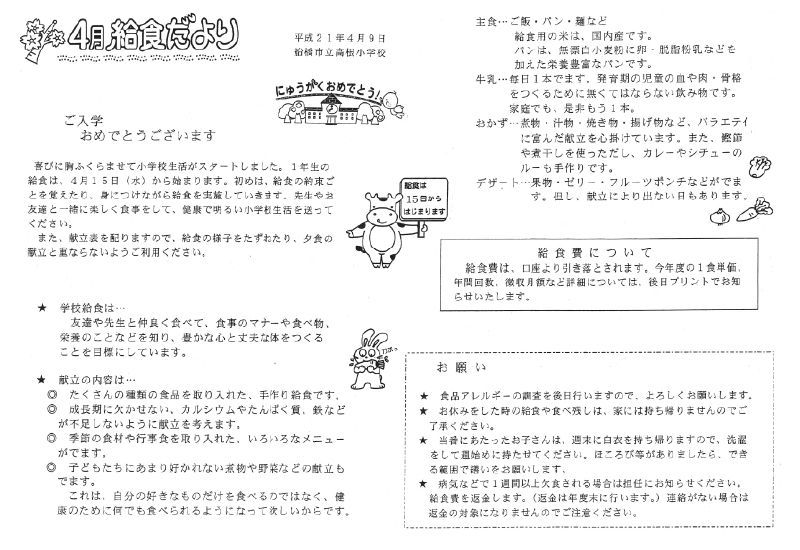 4月給食だより
平成21年4月9日
船橋市立高根小学校
にゅうがくおめでとう!
ご入学
おめでとうございます
喜びに胸ふくらませて小学校生活がスタートしました。1年生の
給食は、4月15日(水)から始まります。初めは、給食の約束ご
とを覚えたり、身につけながら給食を実施していきます。先生やお
友達と一緒に楽しく食事をして、健康で明るい小学校生活を送って
ください。
また、献立表を配りますので、給食の様子をたずねたり、夕食の
献立と重ならないようご利用ください。
給食は
15日から
はじまります
★ 学校給食は…
友達や先生と仲良く食べて、食事のマナーや食べ物、
栄養のことなどを知り、豊かな心と丈夫な体をつくる
ことを目標にしています。
★ 献立の内容は…
◎ たくさんの種類の食品を取り入れた、手作り給食です。
◎ 成長期に欠かせない、カルシウムやたんぱく質、鉄など
が不足しないように献立を考えます。
◎ 季節の食材や行事食を取り入れた、いろいろなメニュー
がでます。
◎ 子どもたちにあまり好かれない煮物や野菜などの献立も
でます。
これは、自分の好きなものだけを食べるのではなく、健
康のために何でも食べられるようになって欲しいからです。
主食…ご飯・パン・麺など
給食用の米は、国内産です。
パンは、無漂白小麦粉に卵・脱脂粉乳などを
加えた栄養豊富なパンです。
牛乳…毎日1本でます。発育期の児童の血や肉・骨格
をつくるために無くてはならない飲み物です。
家庭でも、是非もう1本。
おかず…煮物・汁物・焼き物・揚げ物など、バラエティ
に富んだ献立を心掛けています。また、鰹節
や煮干しを使っただし、カレーやシチューの
ルーも手作りです。
デザート…果物・ゼリー・フルーツポンチなどがでま
す。但し、献立により出ない日もあります。
給食費について
給食費は、口座より引き落とされます。今年度の1食単価、
年間回数、徴収月額など詳細については、後日プリントでお知
らせいたします。
お願い
★ 食品アレルギーの調査を後日行いますので、よろしくお願いします。
★ お休みをした時の給食や食べ残しは、家には持ち帰りませんのでご
了承ください。
★ 当番にあたったお子さんは、週末に白衣を持ち帰りますので、洗濯
をして週始めに持たせてください。ほころび等がありましたら、でき
る範囲で繕いをお願いします。
★ 病気などで1週間以上欠食される場合は担任にお知らせください。
給食費を返金します。(返金は年度末に行います。)連絡がない場合は
返金の対象になりませんのでご注意ください。